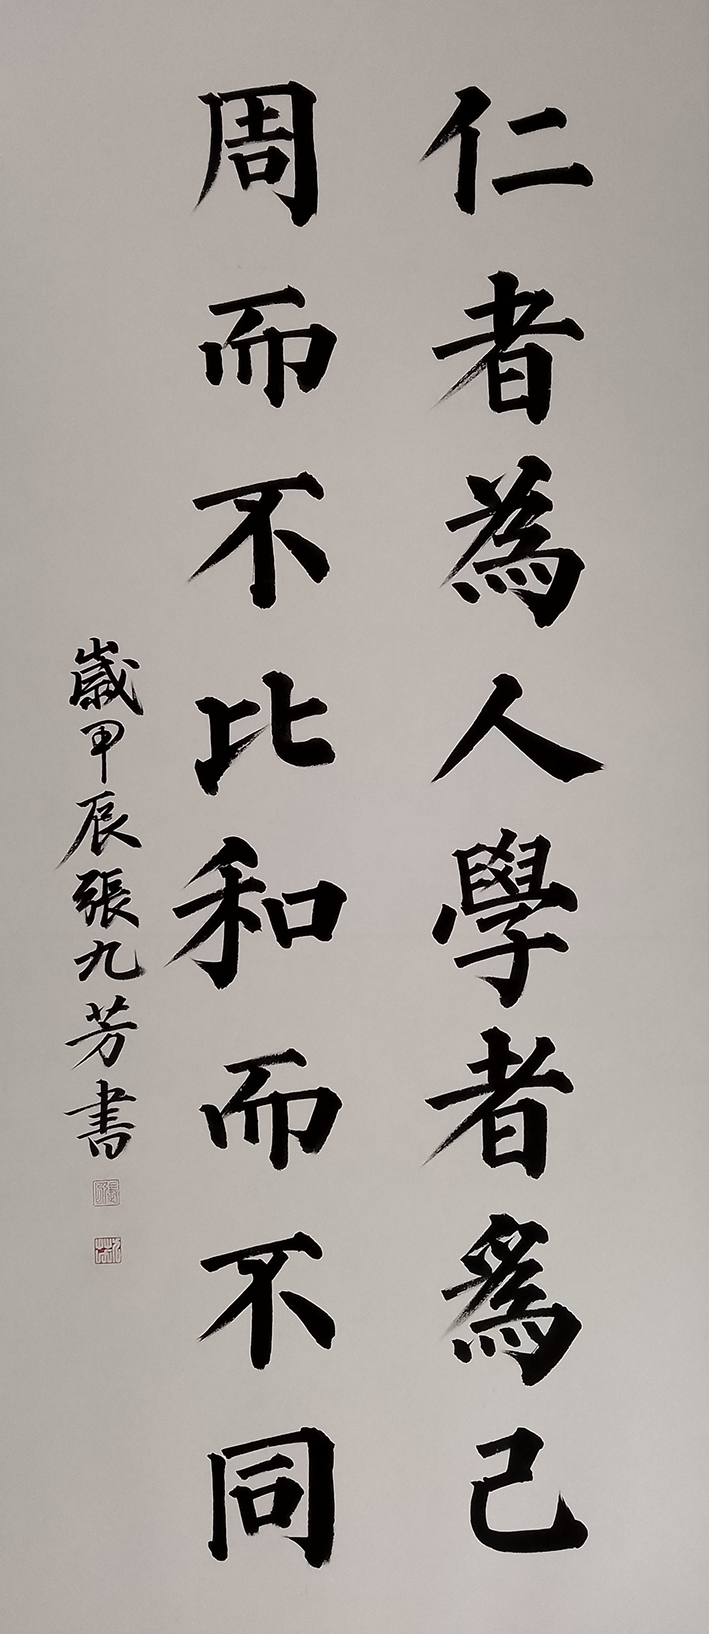 仁者為人學者爲己
周而不比和而不同
歲甲辰張九芳書